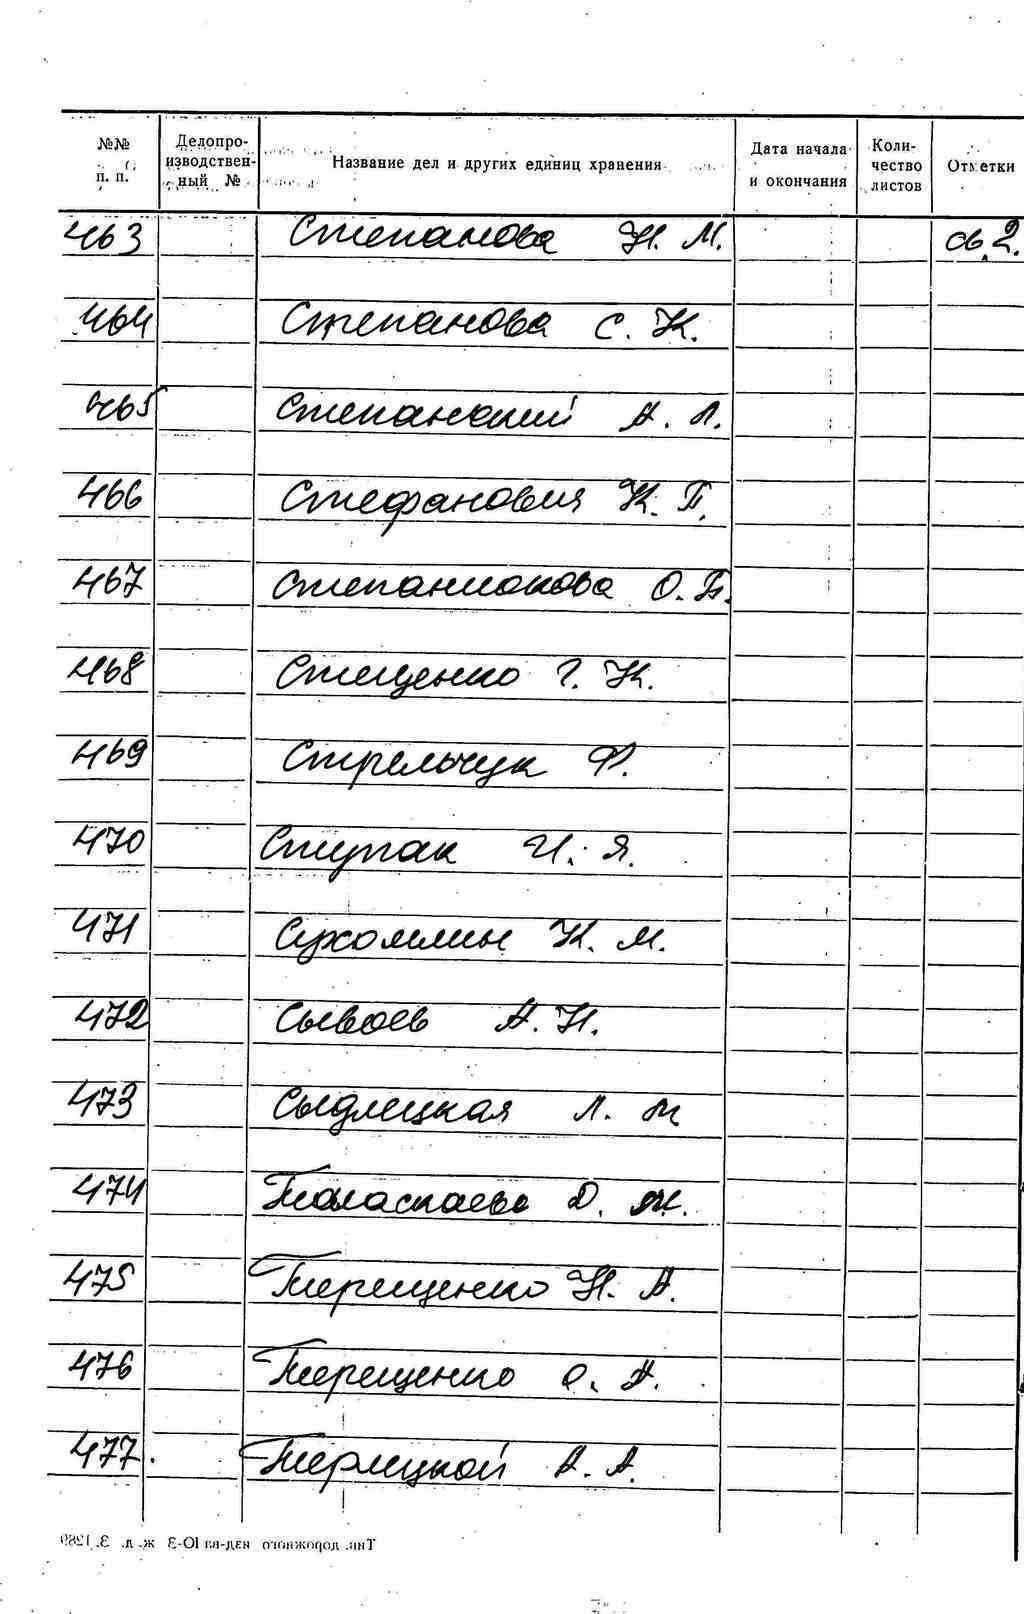 №№ п. п. Делопроизводственный № Название дел и других единиц хранения Дата начала и окончания Количество листов Отметки
463 Степанова Н. М. св. 2.
464 Степанова С. К.
465 Степанский А. Л.
466 Стефанович К. П.
467 Степанюакова О. П.
468 Стеценко Г. К.
469 Стрельчук Ф.
470 Ступак И. Я.
471 Сухомлин К. М.
472 Сываев А. Н.
473 Сыдлецкая Л. М
474 Таласпаева Д. М.
475 Терещенко Н. А.
476 Терещенко О. А.
477. Терлецкой А. А.
Тип. дорожного изд-ва Ю-З ж. д. З. 1289